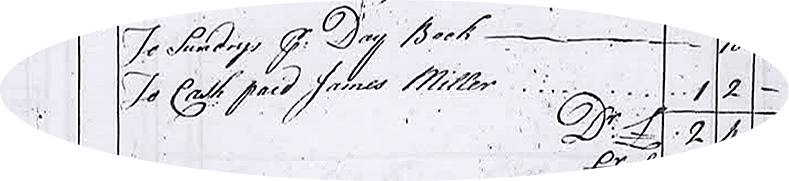 To Sundrys pr. Day Book
To Cash paid James Miller 1 2 –
Dr. £ 2